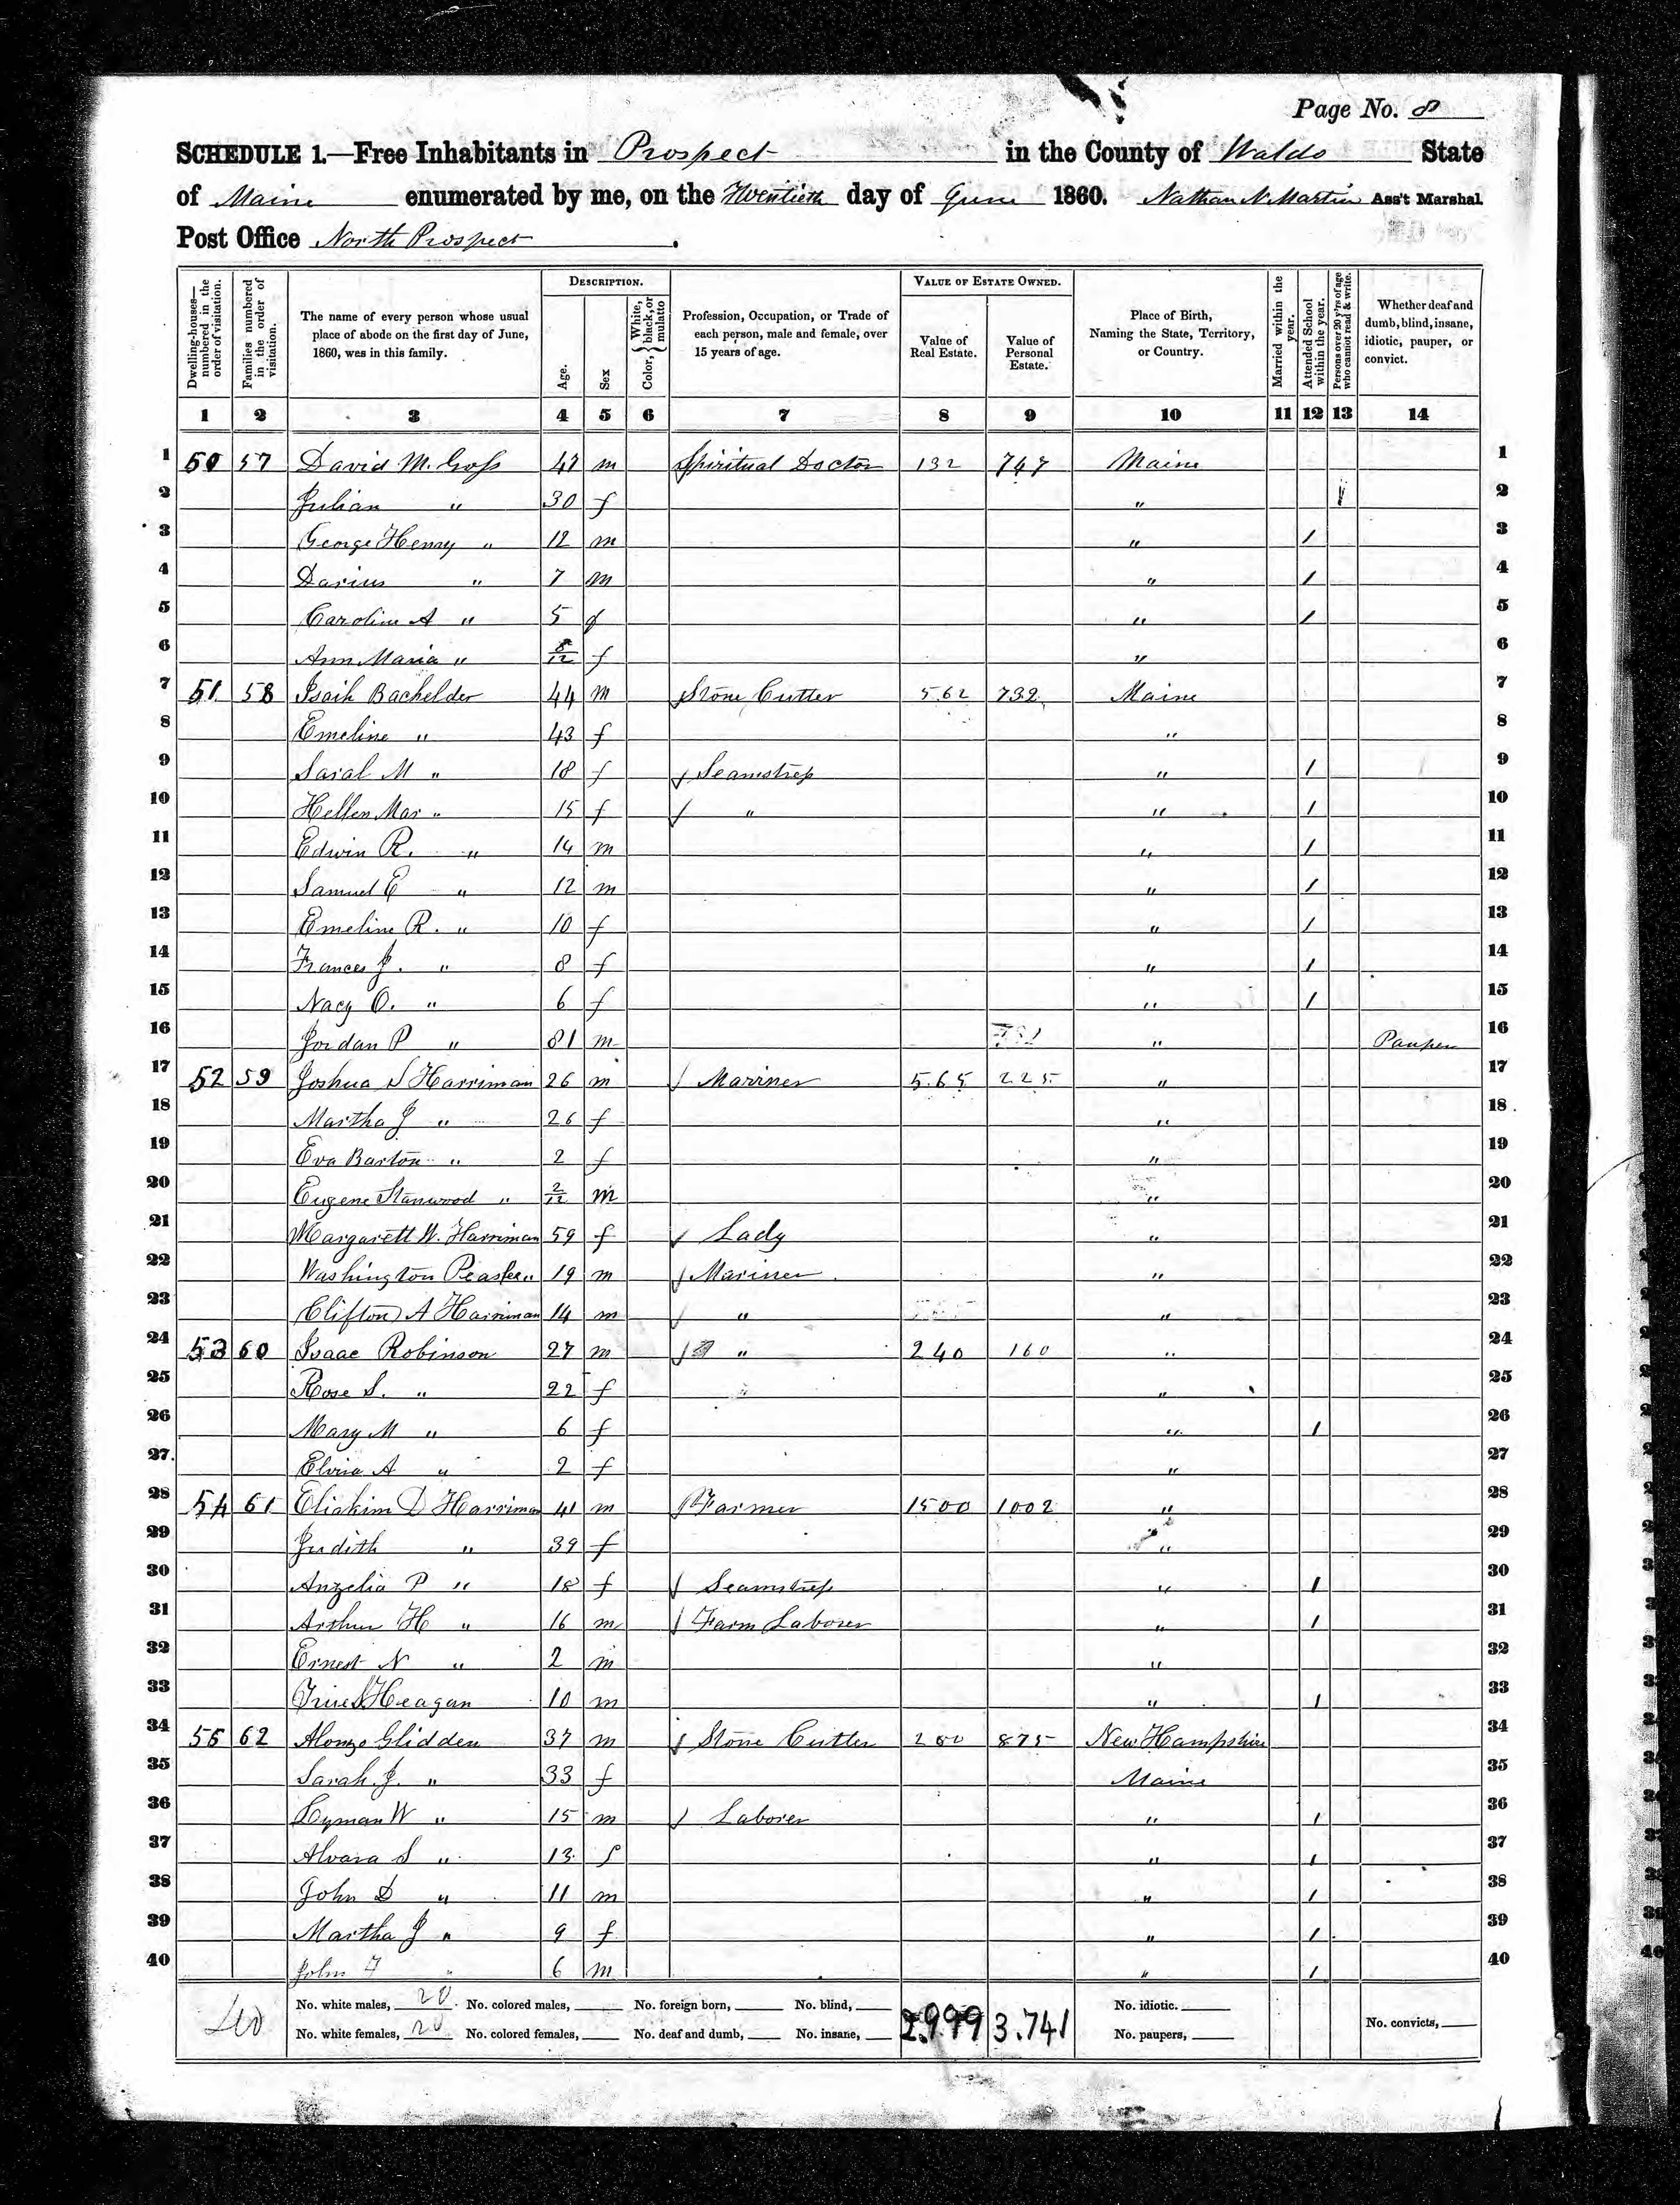 Page No. 8
SCHEDULE 1.—Free Inhabitants in Prospect in the County of Waldo State
of Maine enumerated by me, on the Twentieth day of June 1860. Nathan N. Martin Ass't Marshal.
Post Office North Prospect.
Dwelling-houses—numbered in the order of visitation. Families numbered in the order of visitation. The name of every person whose usual place of abode on the first day of June, 1860, was in this family. DESCRIPTION. Age. Sex Color, {White, black, or mulatto Profession, Occupation, or Trade of each person, male and female, over 15 years of age. VALUE OF ESTATE OWNED. Value of Real Estate. Value of Personal Estate. Place of Birth, Naming the State, Territory, or Country. Married within the year. Attended School within the year. Persons over 20 y'rs of age who cannot read & write. Whether deaf and dumb, blind, insane, idiotic, pauper, or convict.
1 2 3 4 5 6 7 8 9 10 11 12 13 14
1 50 57 David M. Goss 47 m Spiritual Doctor 132 747 Maine 1
2 Julian " 30 f " / 2
3 George Henry " 12 m " / 3
4 Darius " 7 m " / 4
5 Caroline A " 5 f " / 5
6 Ann Maria " 8/12 f " 6
7 51 58 Isaih Bachelder 44 m Stone Cutter 562 732 Maine 7
8 Emeline " 43 f " 8
9 Sarah M " 18 f Seamstress " / 9
10 Hellen Mar " 15 f " " / 10
11 Edwin R. " 14 m " / 11
12 Samuel E " 12 m " / 12
13 Emeline R. " 10 f " / 13
14 Frances J. " 8 f " / 14
15 Nacy O. " 6 f " / 15
16 Jordan P " 81 m " Pauper 16
17 52 59 Joshua S Harriman 26 m Mariner 565 225 " 17
18 Martha J " 26 f " 18
19 Eva Barton " 2 f " 19
20 Eugene Stanwood " 2/12 m " 20
21 Margarett W. Harriman 59 f Lady " 21
22 Washington Peaslee " 19 m Mariner " 22
23 Clifton A Harriman 14 m " " 23
24 53 60 Isaac Robinson 27 m " 240 160 " 24
25 Rose S. " 22 f " 25
26 Mary M " 6 f " / 26
27 Elvira A " 2 f " 27
28 54 61 Eliakim D Harriman 41 m Farmer 1500 1002 " 28
29 Judith " 39 f " 29
30 Anzelia P " 18 f Seamstress " / 30
31 Arthur H " 16 m Farm Laborer " / 31
32 Ernest N " 2 m " 32
33 Heagan 10 m " / 33
34 55 62 Alonzo Glidden 37 m Stone Cutter 875 New Hampshire 34
35 Sarah J. " 33 f Maine 35
36 Lyman W " 15 m Laborer " / 36
37 Alvara S " 13 f " / 37
38 John D " 11 m " / 38
39 Martha J " 9 f " / 39
40 John F " 6 m " / 40
40 No. white males, 20 No. colored males, No. foreign born, No. blind, 2.999 3.741 No. idiotic.
No. white females, 20 No. colored females, No. deaf and dumb, No. insane, No. paupers, No. convicts,